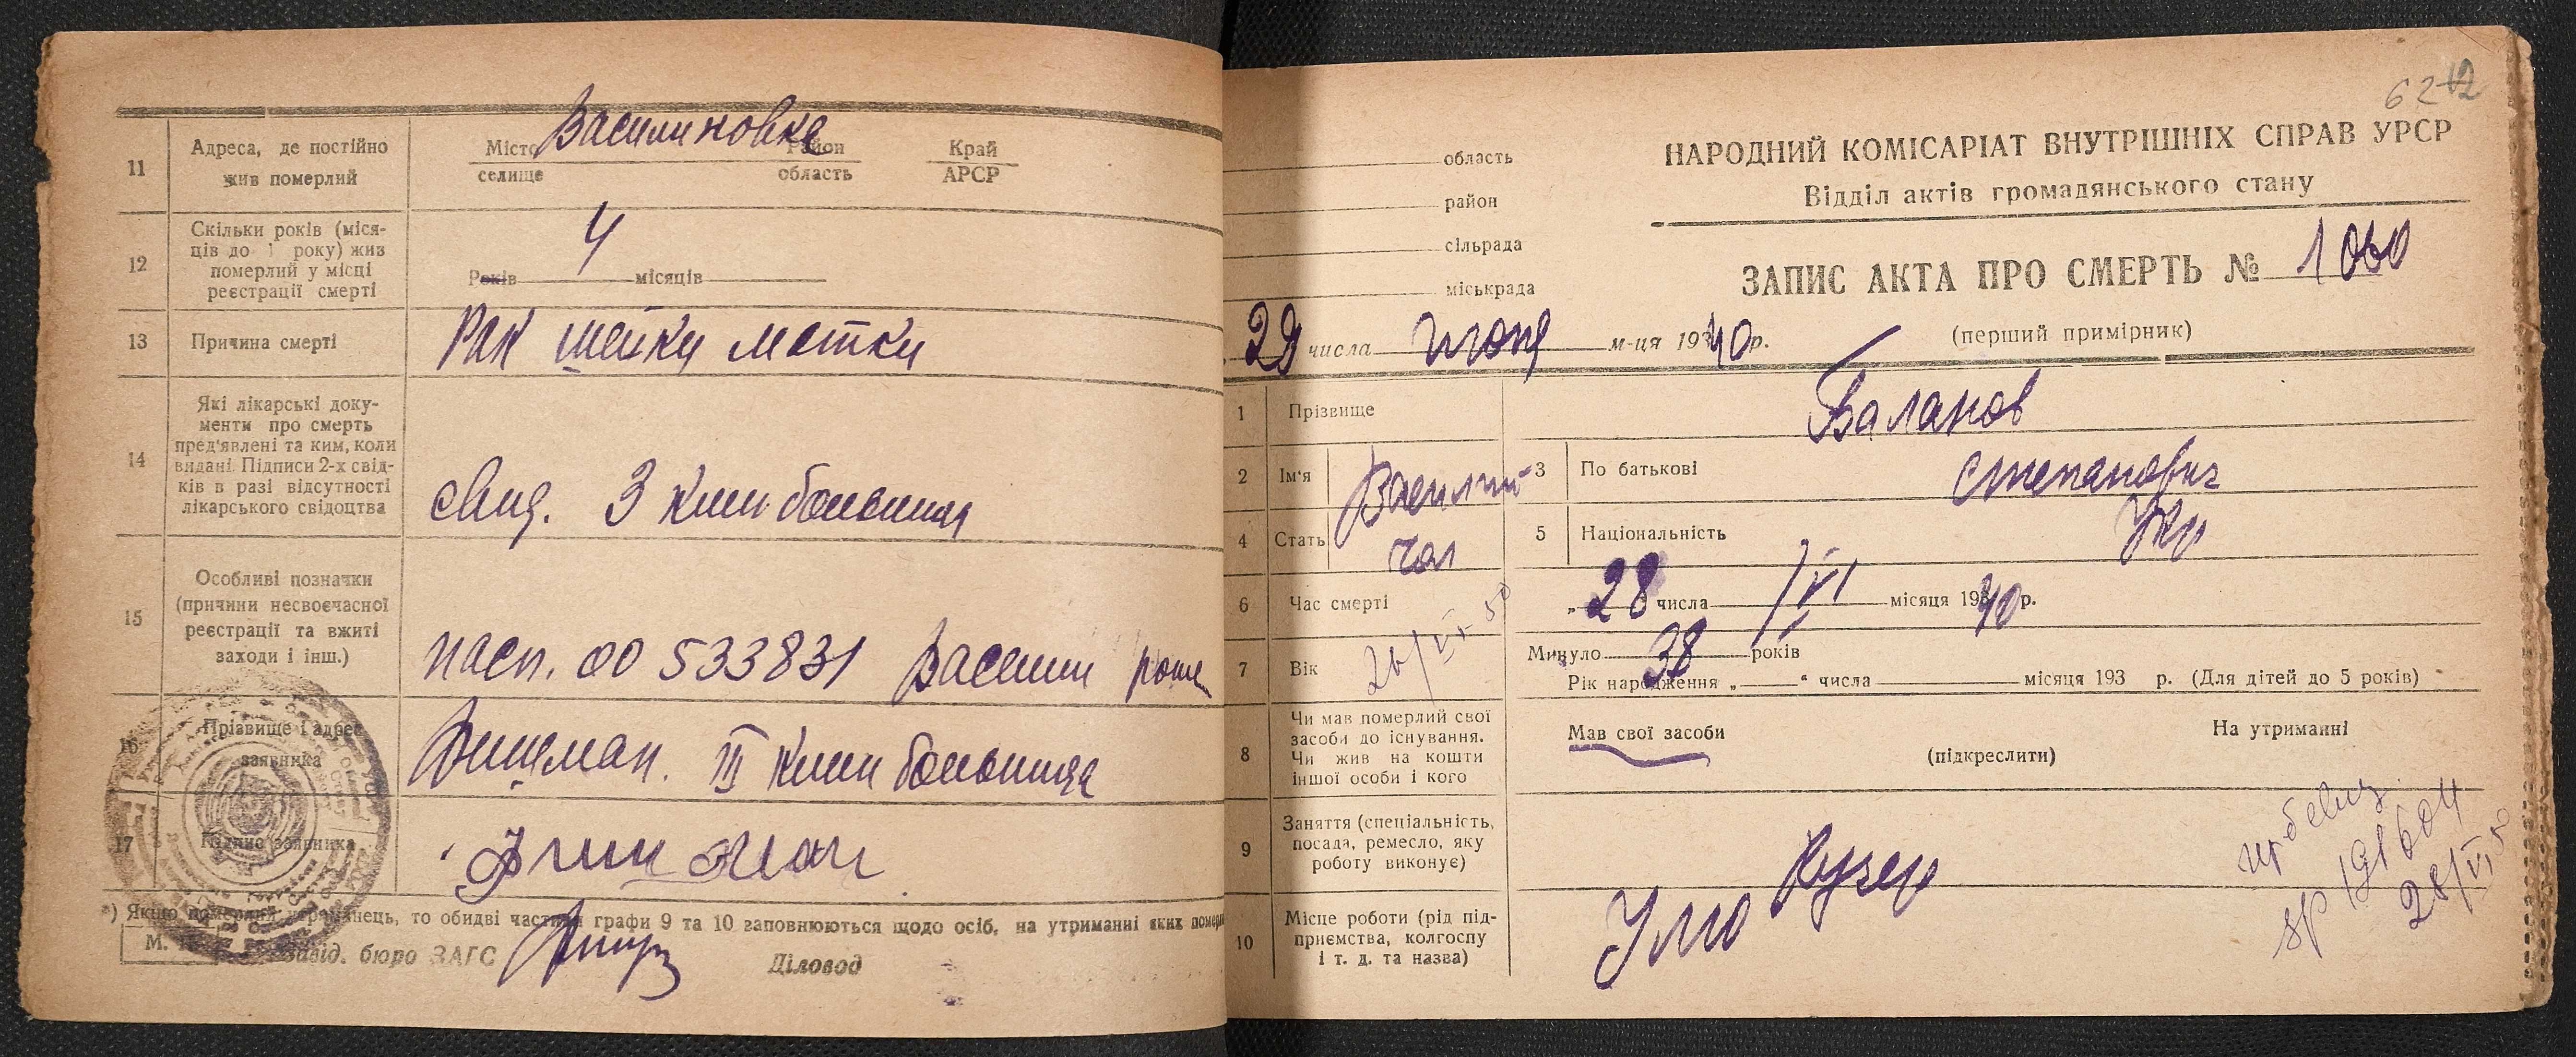 11
Адреса, де постійно
жив померлий
Василиновка
Місто Район Край
селище область АРСР
12
Скільки років (міся-
ців до 1 року) жив
померлий у місці
реєстрації смерті
4
Років місяців
13
Причина смерті
Рак шейки матки
14
Які лікарські доку-
менти про смерть
пред'явлені та ким, коли
видані. Підписи 2-х свід-
ків в разі відсутності
лікарського свідоцтва
3 Клин больница
15
Особливі позначки
(причини несвоєчасної
реєстрації та вжиті
заходи і інш.)
пасп. 00 533831
16
Прізвище і адрес
заявника
III Клин больница
17
Підпис заявника
*) Якщо померлий утриманець, то обидві частини графи 9 та 10 заповнюються щодо осіб, на утриманні яких
М. П.
Завід. бюро ЗАГС
Діловод
62
12
область
район
сільрада
міськрада
НАРОДНИЙ КОМІСАРІАТ ВНУТРІШНІХ СПРАВ УРСР
Відділ актів громадянського стану
ЗАПИС АКТА ПРО СМЕРТЬ №
29 числа июня м-ця 1940 р.
(перший примірник)
1 Прізвище Баланов
2 Ім'я Василий 3 По батькові Степанович
4 Стать чол 5 Національність Укр
6 Час смерті „28 числа /VI місяця 1940 р.
26/VI-50
7 Вік Минуло 38 років
Рік народження „ “ числа місяця 193 р. (Для дітей до 5 років)
8
Чи мав померлий свої
засоби до існування.
Чи жив на кошти
іншої особи і кого
Мав свої засоби
(підкреслити)
На утриманні
9
Заняття (спеціальність,
посада, ремесло, яку
роботу виконує)
10
Місце роботи (рід під-
приємства, колгоспу
і т. д. та назва)
191604
28/VI 50